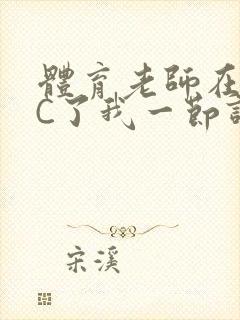 體育老師在
C了我一節
宋溪